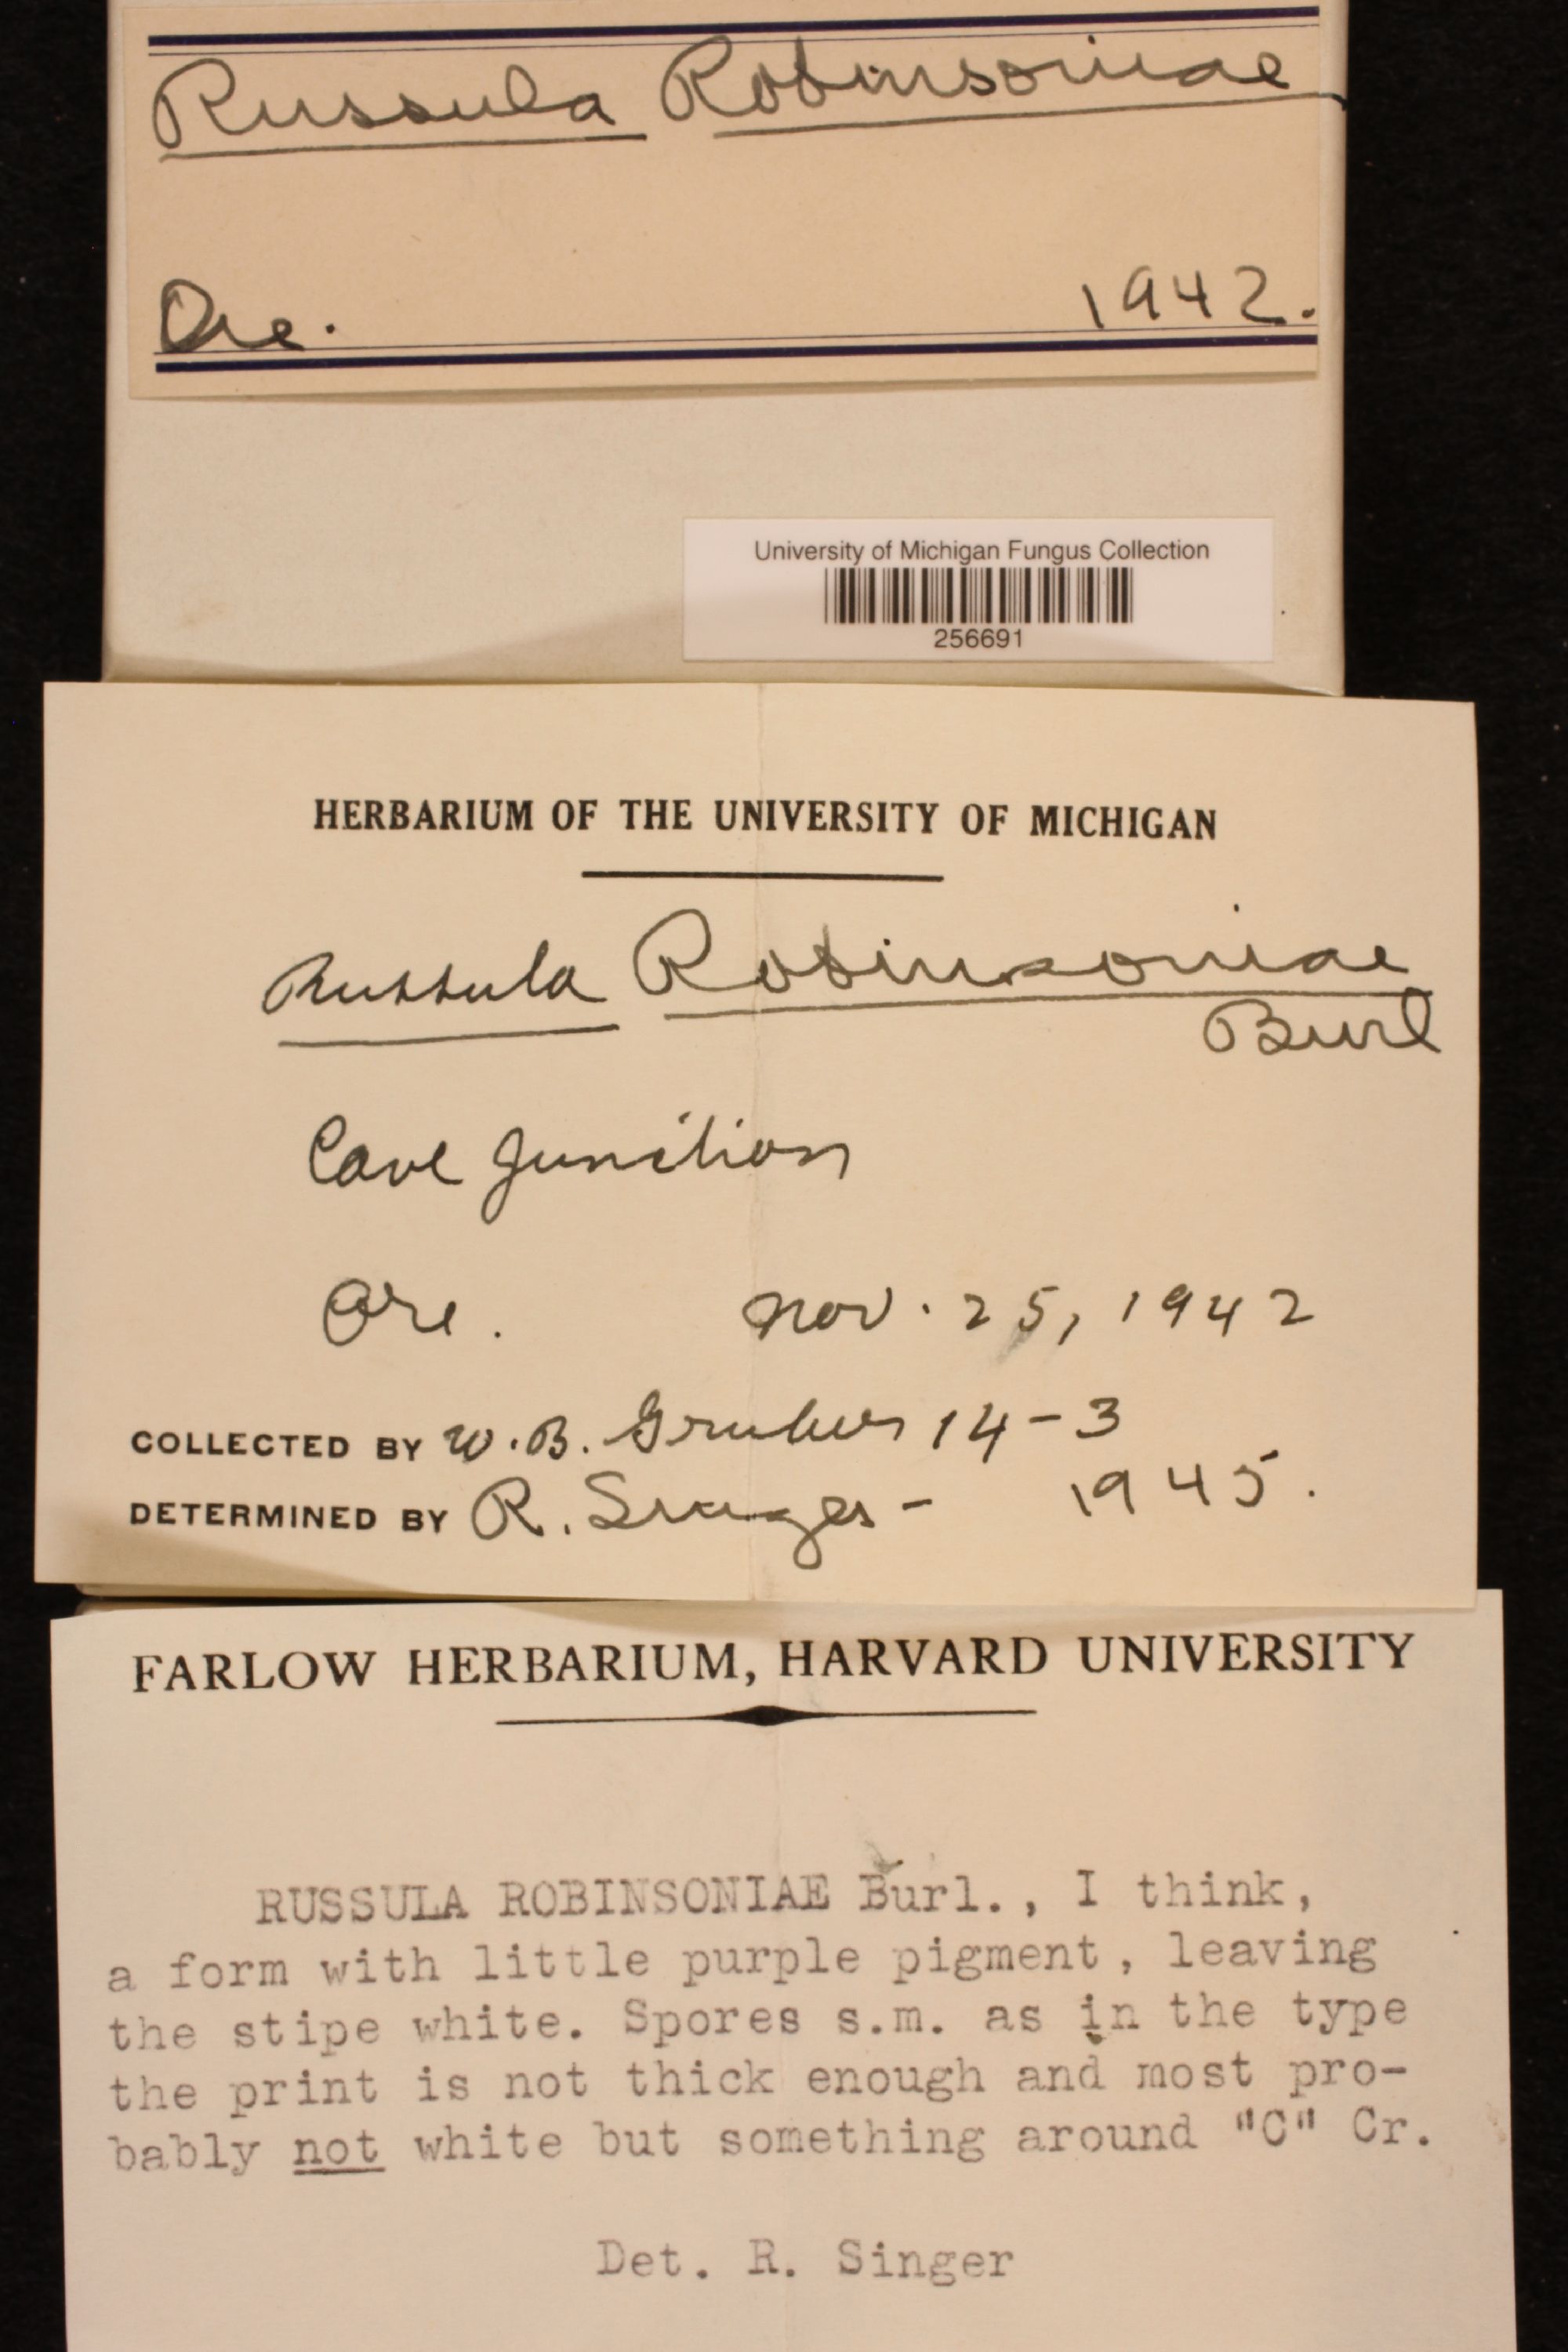 Russula Robinsoniae
Ore. 1942.
University of Michigan Fungus Collection
256691
HERBARIUM OF THE UNIVERSITY OF MICHIGAN
Russula Robinsoniae
Burl
Cave Junction
Ore. Nov. 25, 1942
COLLECTED BY W. B. Gruber 14-3
DETERMINED BY R. Singer - 1945.
FARLOW HERBARIUM, HARVARD UNIVERSITY
RUSSULA ROBINSONIAE Burl., I think,
a form with little purple pigment, leaving
the stipe white. Spores s.m. as in the type
the print is not thick enough and most pro-
bably not white but something around "C" Cr.
Det. R. Singer